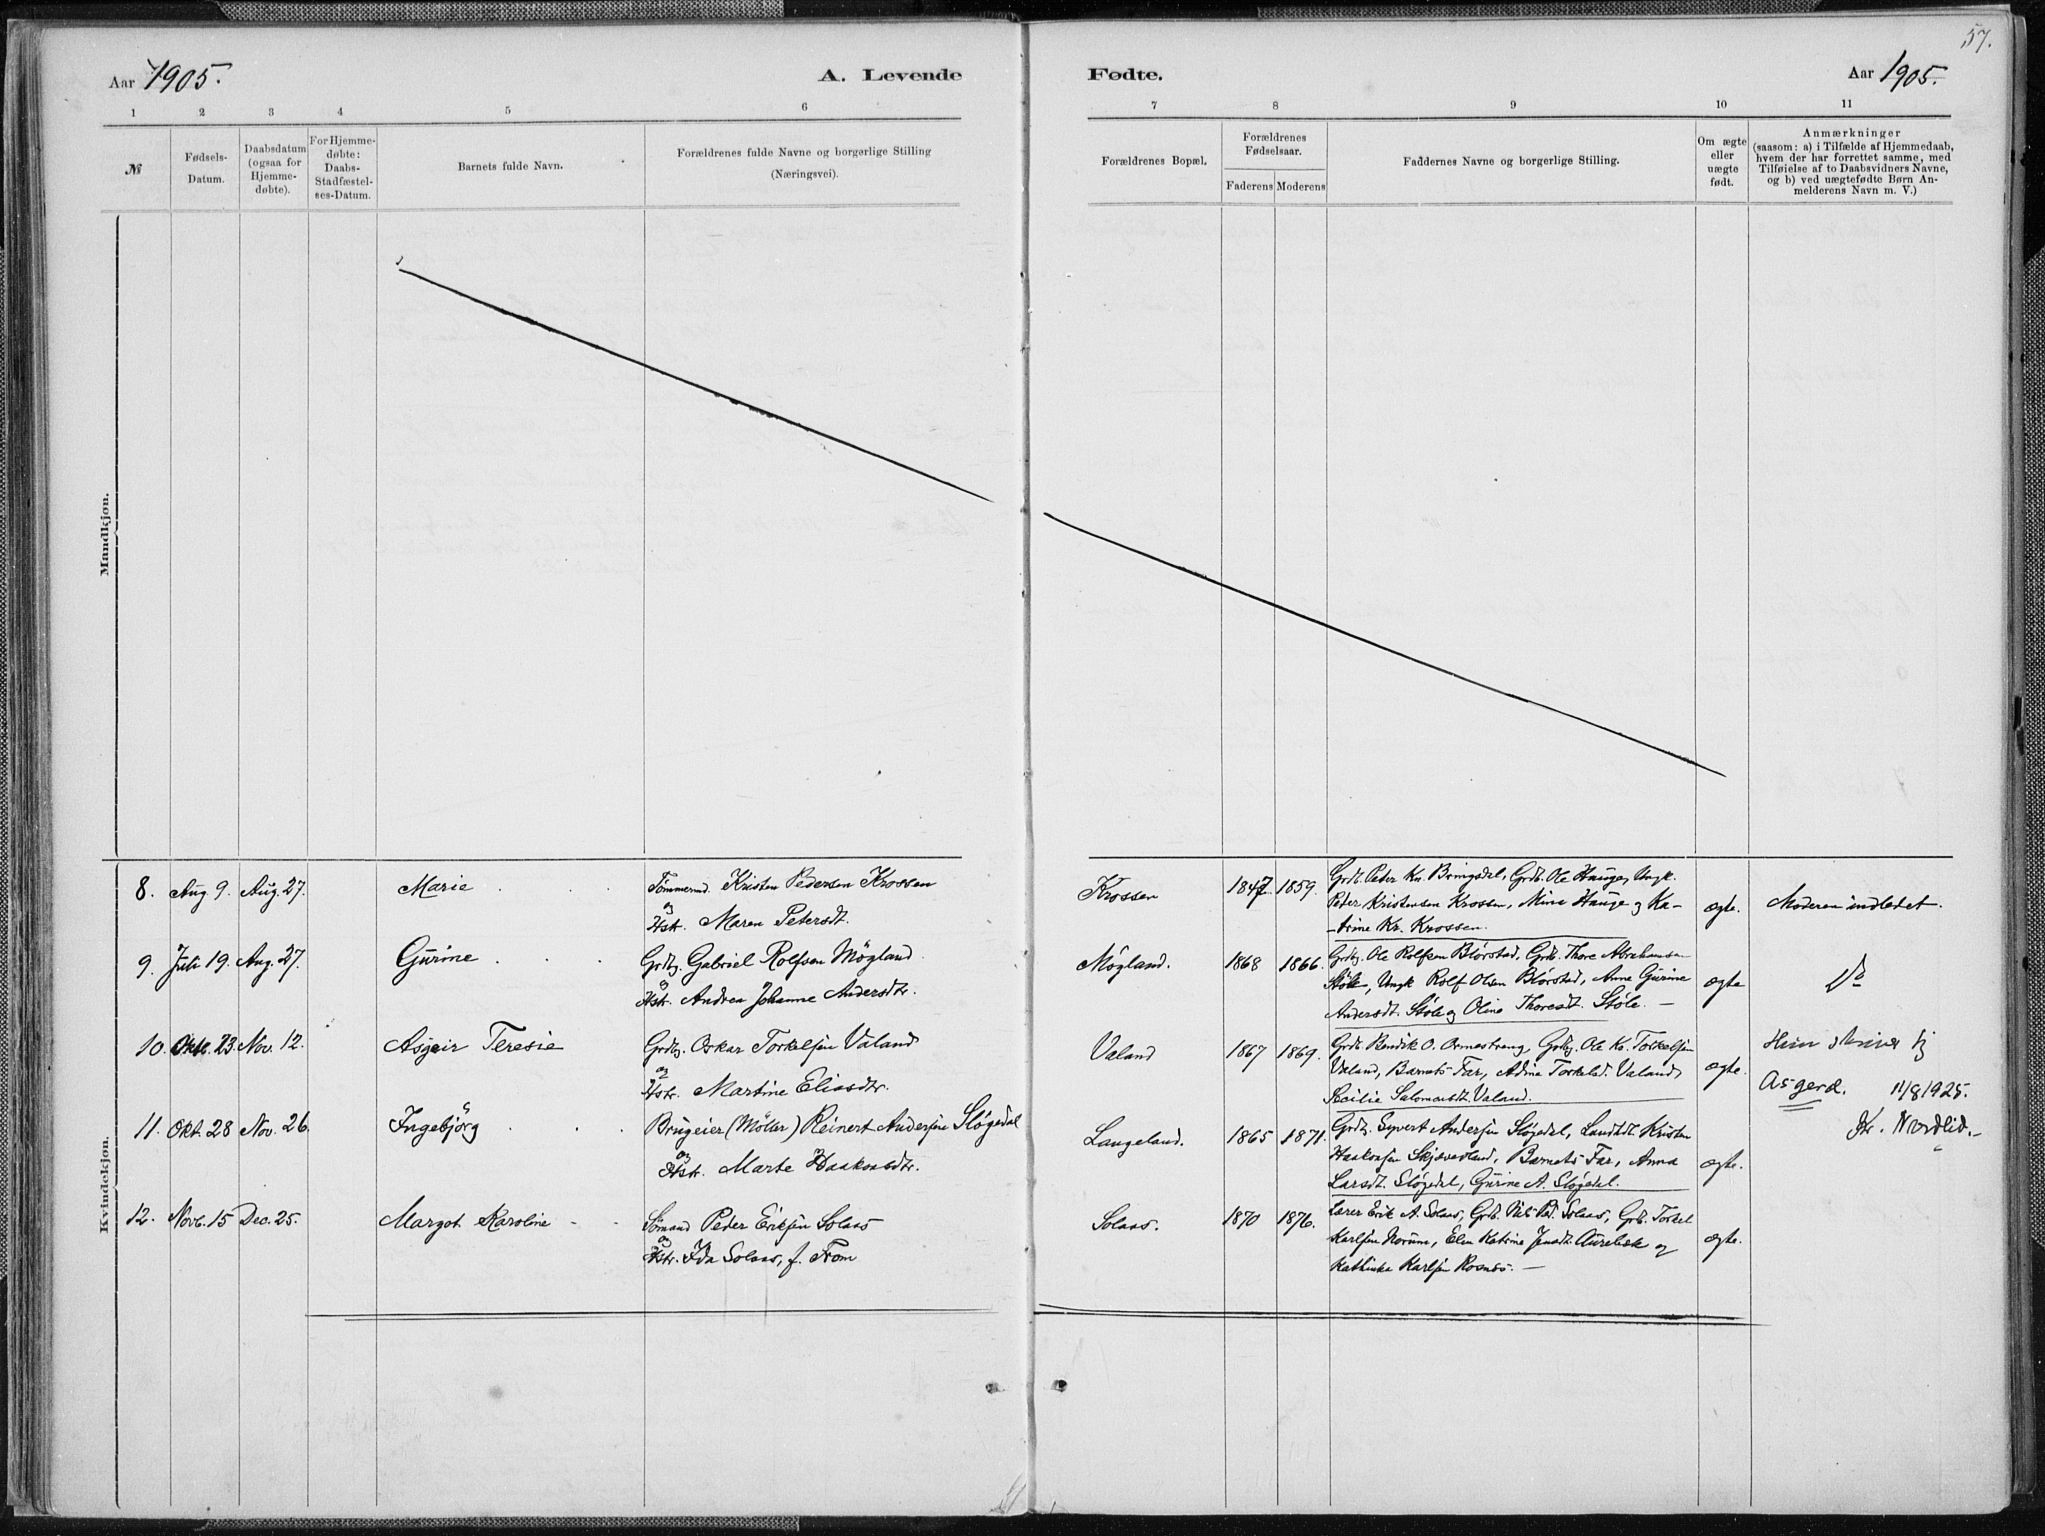 57.
Aar 1905.
A. Levende
Fødte.
Aar 1905.
1 2 3 4 5 6 7 8 9 10 11
№
Fødsels-
Datum.
Daabsdatum
(ogsaa for
Hjemme-
døbte).
For Hjemme-
døbte:
Daabs-
Stadfæstel-
ses-Datum.
Barnets fulde Navn.
Forældrenes fulde Navne og borgerlige Stilling
(Næringsvei).
Forældrenes Bopæl.
Forældrenes
Fødselsaar.
Faderens Moderens
Faddernes Navne og borgerlige Stilling.
Om ægte
eller
uægte
født.
Anmærkninger
(saasom: a) i Tilfælde af Hjemmedaab,
hvem der har forrettet samme, med
Tilføielse af to Daabsvidners Navne,
og b) ved uægtefødte Børn An-
melderens Navn m. V.)
Mandkjøn.
Kvindekjøn.
8. Aug 9. Aug. 27. Marie
Tømmermd. Kristen Pedersen Krossen
og
Hstr. Maren Petersdt.
Krossen 1847 1859.
Grdb. Peder Kr. Bringsdal, Grdb. Ole Hauge, Ungk.
Peder Kristensen Krossen, Mina Hauge og Ka-
-trine Kr. Krossen.
ægte. Moderen indledet.
9. Juli 19. Aug. 27. Gurine
Grdbg. Gabriel Rolfsen Møgland
og
Hstr. Andrea Johanne Andersdtr.
Møgland. 1868 1866.
Grdbg. Ole Rolfsen Blørstad, Grdb. Thore Abrahamsen
Støle, Ungk Rolf Olsen Blørstad, Anne Gurine
Andersdt. Støle og Oline Thoresdt. Støle. —
ægte Do
10. Okt. 23. Nov. 12. Asgeir Teresie
Grdbg. Oskar Torkelsen Valand
og
Hstr. Martine Eliasdtr.
Valand 1867 1869.
Grdb. Bendik O. Ormestrang, Grdbg. Ole Kr. Torkelsen
Valand, Barnets Far, Adina Torkelsd. Valand,
Secilie Salomonsdt. Valand.
ægte.
Hun skriver sig
Asgerd. 11/8 1925.
Kr. Nordlid.
11. Okt. 28 Nov. 26. Ingebjørg
Brugeier (Møller) Reinert Andersen Sløgedal
og
Hstr. Marte Haakonsdtr.
Langeland. 1865 1871.
Grdbg. Syvert Andersen Sløgedal, Landhdl. Kristen
Haakonsen Skjævedland, Barnets Far, Anna
Larsdt. Sløgedal, Gurine A. Sløgedal.
ægte.
12. Novb. 15 Dec. 25. Margot Karoline
Sømand Peder Eriksen Solaas
og
Hstr. Ida Solaas, f. From
Solaas. 1870 1876.
Lærer Erik A. Solaas, Grdb. Nils Pd. Solaas, Grdb. Torkel
Karlsen Norum, Elen Katrine Jensdt. Aurebæk og
Kathinka Karlsen Rosnes. —
ægte.